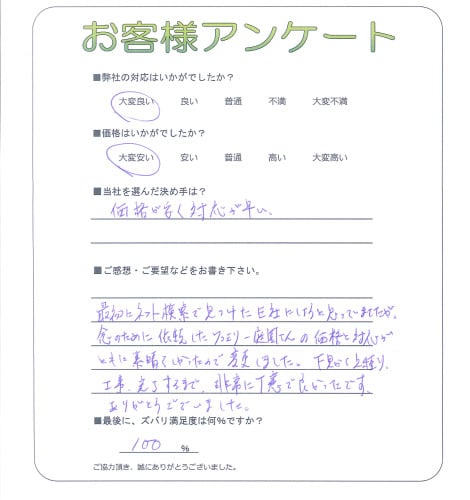 お客様アンケート
■弊社の対応はいかがでしたか？
大変良い 良い 普通 不満 大変不満
■価格はいかがでしたか？
大変安い 安い 普通 高い 大変高い
■当社を選んだ決め手は？
価格が安く対応が早い。
■ご感想・ご要望などをお書き下さい。
最初にネット検索で見つけたE社にしようと思っていましたが、
念のために依頼した 庭園さんの価格と対応が
ともに素晴らしかったので変更しました。下見から見積り、
工事、完了するまで、非常に丁寧で良かったです。
ありがとうございました。
■最後に、ズバリ満足度は何%ですか？
100 %
ご協力頂き、誠にありがとうございました。